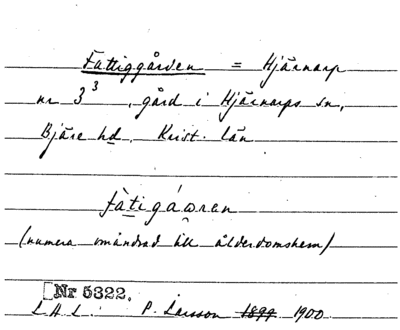 Fattiggården = Hjärnarp
nr 3³, gård i Hjärnarps sn,
Bjäre hd, Krist. län
fàtigáωrən
(numera omändrad till ålderdomshem)
Nr 5322.
L.A.L. P. Larsson 1899 1900